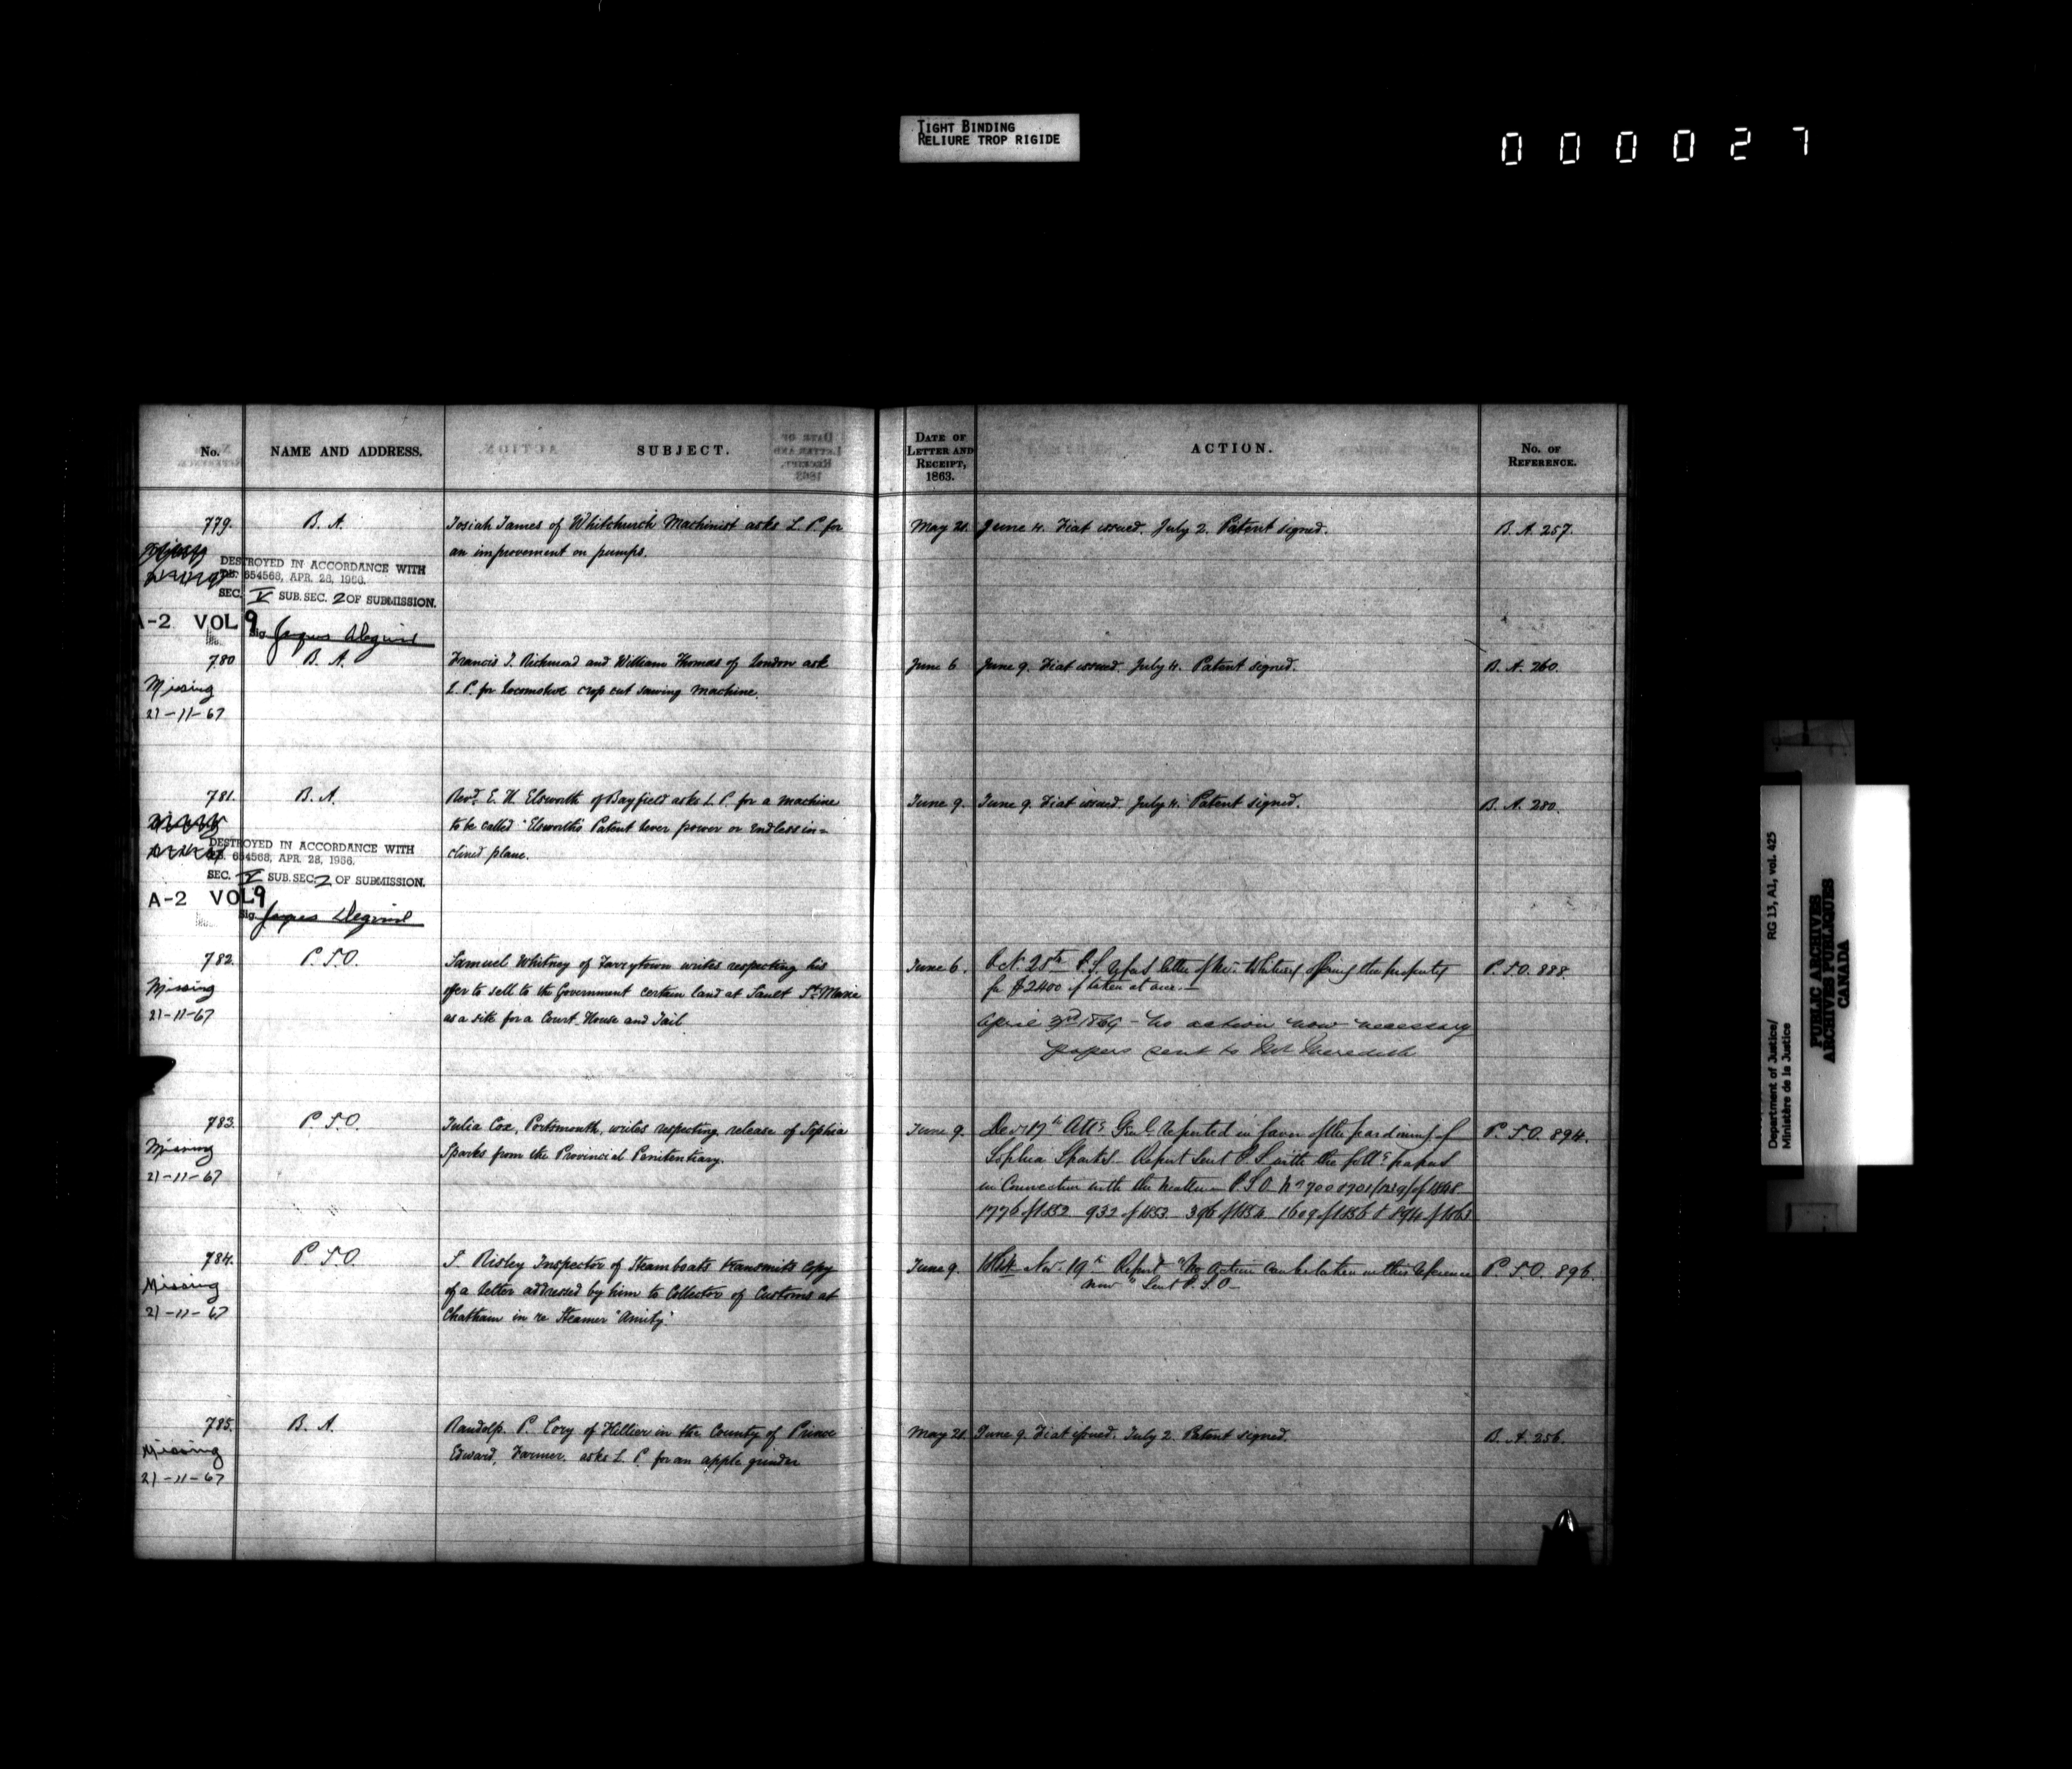 TIGHT BINDING
RELIURE TROP RIGIDE
000027
No.
NAME AND ADDRESS.
SUBJECT.
DATE OF
LETTER AND
RECEIPT,
1863.
ACTION.
No. OF
REFERENCE.
779. B. A. Josiah James of Whitchurch Machinist asks L. P. for
an improvement on pumps.
May 21. June 4. Fiat issued. July 2. Patent signed. B. A. 257.
DESTROYED IN ACCORDANCE WITH
654568, APR. 28, 1966.
SEC. V SUB. SEC. 2 OF SUBMISSION.
A-2 VOL 9
Sig.
780 B. A. Francis J. Richmond and William Thomas of London ask
L. P. for locomotive crop cut sawing machine.
June 6 June 9. Fiat issued. July 4. Patent signed. B. A. 260.
Missing
21-11-67
781. B. A. Revd. E. H. Elsworth of Bayfield asks L. P. for a machine
to be called "Elsworth's Patent lever power or endless in=
clined plane.
June 9. June 9. Fiat issued. July 4. Patent signed. B. A. 280.
DESTROYED IN ACCORDANCE WITH
654568, APR. 28, 1966.
SEC. V SUB. SEC. 2 OF SUBMISSION.
A-2 VOL 9
Sig.
782. P. S. O. Samuel Whitney of Tarrytown writes respecting his
offer to sell to the Government certain land at Sault Ste Marie
as a site for a Court House and Jail.
Missing
21-11-67
June 6. Oct. 28th P. S. letter of Mr. Whitney offering the property
for $2400 if taken at once.
April 3rd 1869 - No action now necessary
papers sent to Mr Meredith
P. S. O. 888.
783. P. S. O. Julia Cox, Portsmouth, writes respecting release of Sophia
Sparks from the Provincial Penitentiary.
Missing
21-11-67
June 9. Att. Genl. reported in favor of the pardoning of
Sophia Sparks. Report sent P. S. with the follg. papers
in connection with the matter P. S. O. of 1848
1776 of 1852 932 of 1853 396 of 1854 1609 of 1856 & 894 of 1863
P. S. O. 894.
784. P. S. O. S. Risley Inspector of Steamboats transmits copy
of a letter addressed by him to Collector of Customs at
Chatham in re Steamer "Amity."
Missing
21-11-67
June 9. Nov. 19th Report "No action can be taken on this reference
now" Sent P. S. O.
P. S. O. 896
785. B. A. Randolp. P. Cory of Hillier in the County of Prince
Edward, Farmer, asks L. P. for an apple grinder
Missing
21-11-67
May 21. June 9. Fiat issued. July 2. Patent signed. B. A. 256.
Department of Justice/ RG 13, A1, vol. 425
Ministère de la Justice
PUBLIC ARCHIVES
ARCHIVES PUBLIQUES
CANADA